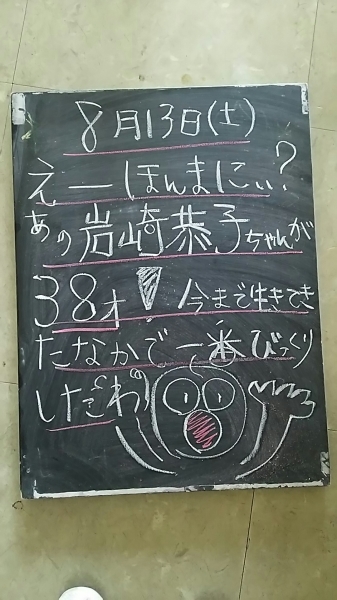 8月13日(土)
えーほんまにぃ?
あの岩崎恭子ちゃんが
38才! 今まで生きてき
たなかで一番びっくり
したわ